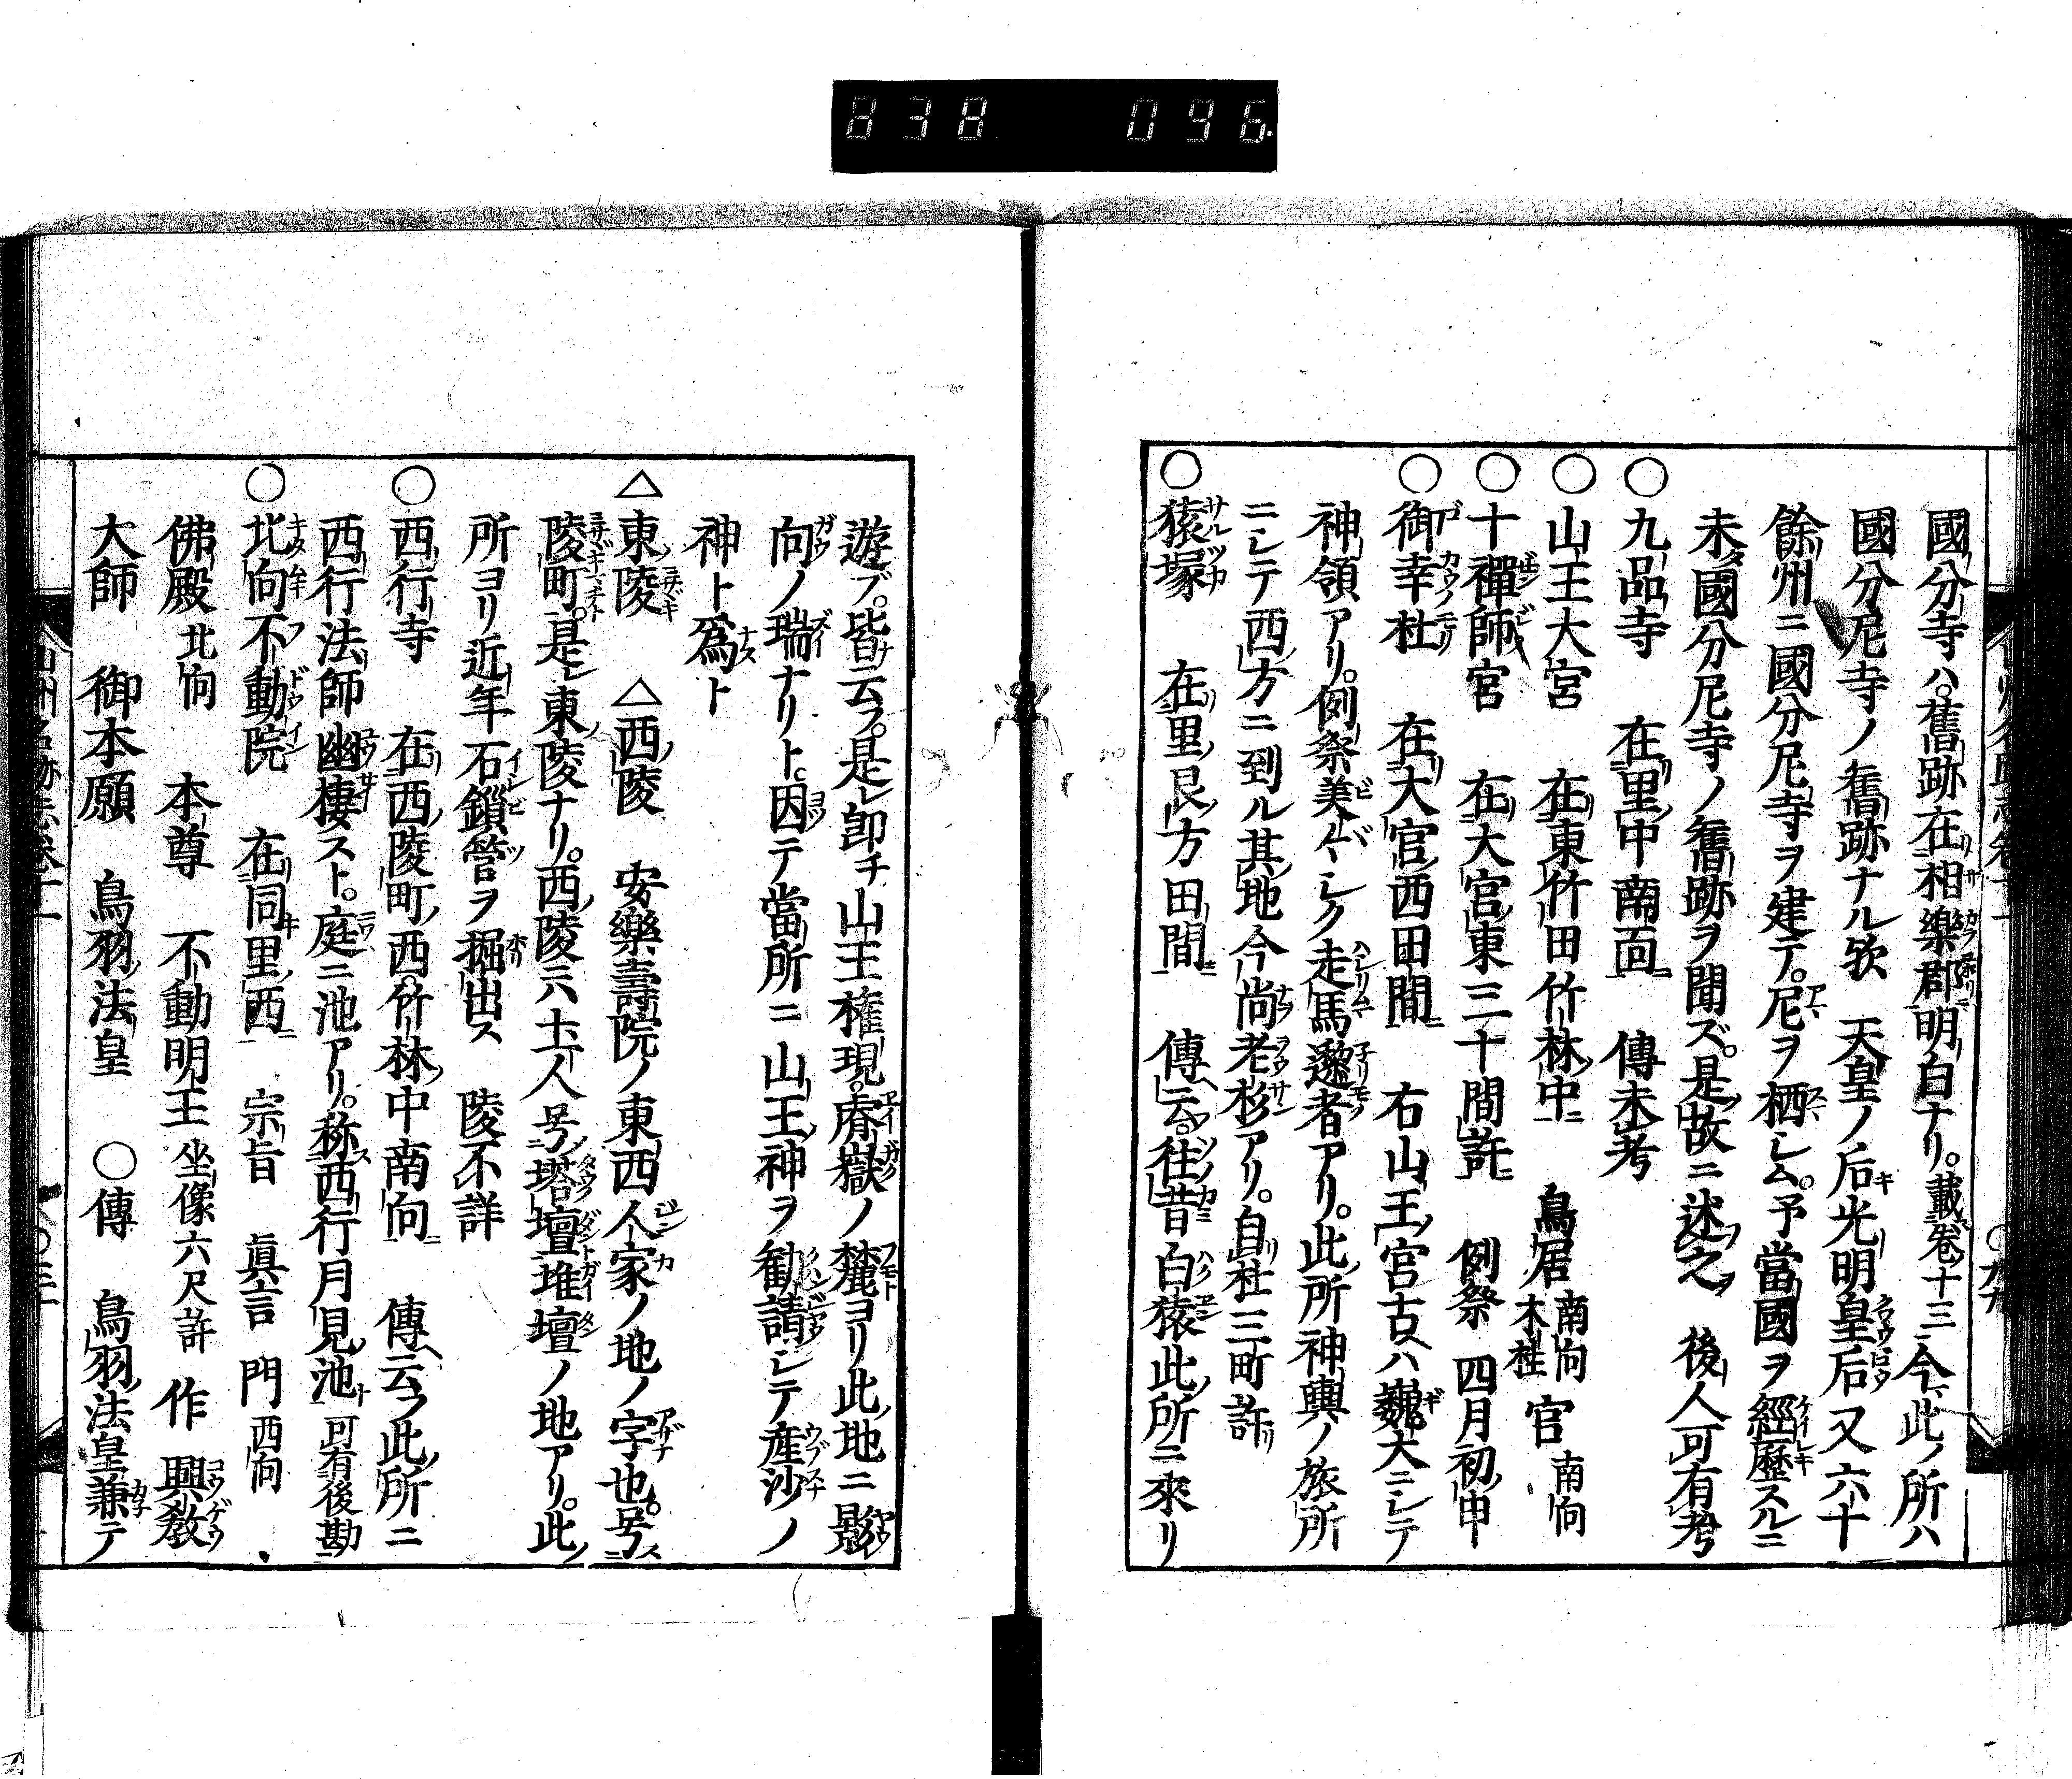 838 096
國分寺ハ舊跡在相樂郡明白ナリ。載卷十三今此ノ所ハ
國分尼寺ノ舊跡ナル欤 天皇ノ后光明皇后又六十
餘州ニ國分尼寺ヲ建テ。尼ヲ栖シム。予當國ヲ經歷スルニ
未國分尼寺ノ舊跡ヲ聞ズ。是故ニ述之 後人可有考
○九品寺 在里中南面 傳未考
○山王大宮 在東竹田竹林中 鳥居 南向 木柱 宮 南向
○十禪師宮 在大宮東三十間許 例祭 四月初申
○御幸杜 在大宮西田間 右山王宮古ハ巍大ニシテ
神領アリ。例祭美〻シク走馬邌者アリ。此所神輿ノ旅所
ニシテ西方ニ到ル其地今尚老杉アリ。自杜三町許
○猿塚 在里艮方田間 傳云。往昔白猿此所ニ來リ
遊ブ。皆云フ。是レ卽チ山王権現。睿嶽ノ麓ヨリ此地ニ影
向ノ瑞ナリト。因テ當所ニ山王神ヲ勧請シテ産沙ノ
神ト爲ト
△東陵 △西陵 安樂壽院ノ東西人家ノ地ノ字也。号
陵町。是レ東陵ナリ。西陵ニハ土人号塔壇堆壇ノ地アリ。此
所ヨリ近年石鎖筥ヲ掘出ス 陵不詳
○西行寺 在西陵町西竹林中南向 傳云フ此所ニ
西行法師幽棲スト。庭ニ池アリ。称西行月見池 可有後勘
○北向不動院 在同里西 宗旨 眞言 門 西向
佛殿 北向 本尊 不動明王 坐像六尺許 作 興教
大師 御本願 鳥羽法皇 ○傳 鳥羽法皇兼テ